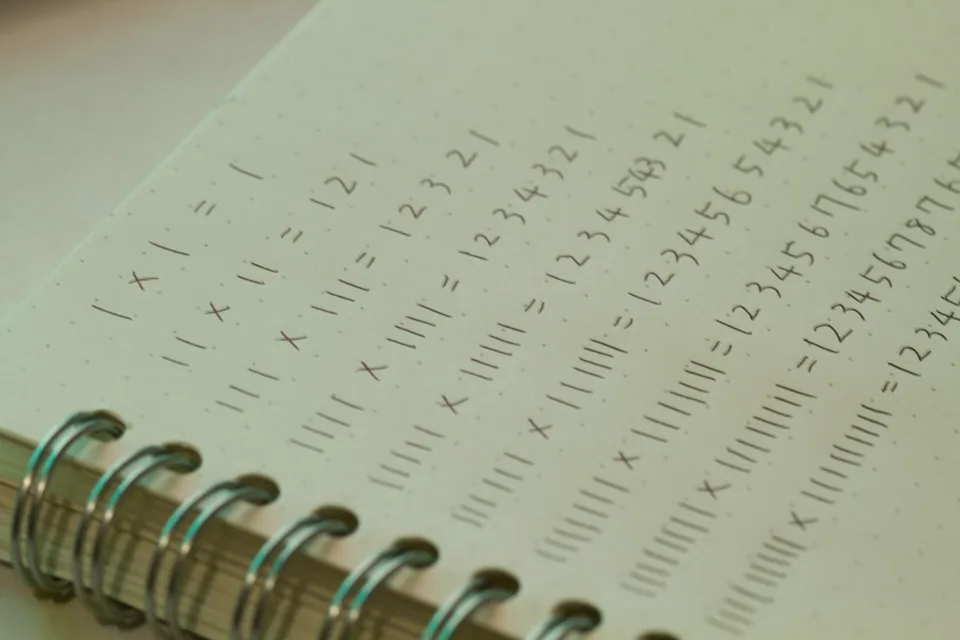 1 x 1 = 1
11 x 11 = 121
111 x 111 = 12321
1111 x 1111 = 1234321
11111 x 11111 = 123454321
111111 x 111111 = 12345654321
1111111 x 1111111 = 1234567654321
11111111 x 11111111 = 12345678765
111111111 x 111111111 = 12345